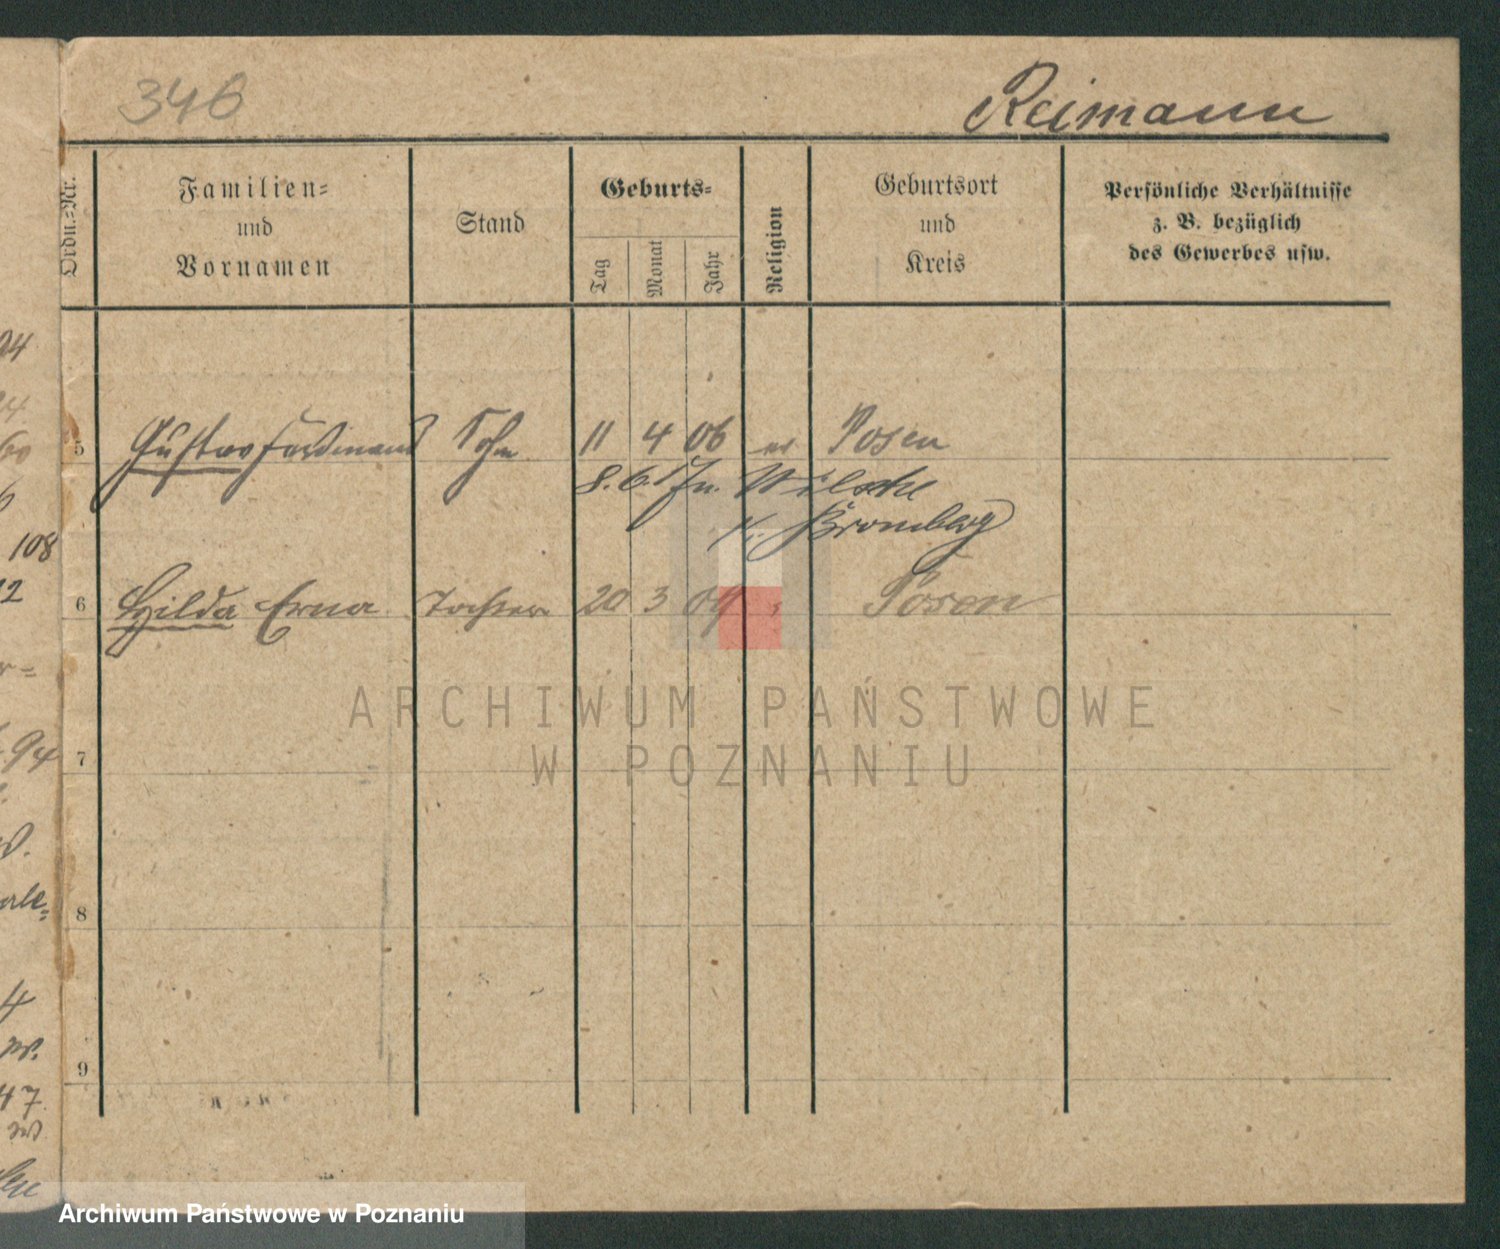 346
Reimann
Ordn.=Nr.
Familien=
und
Vornamen
Stand
Geburts=
Tag
Monat
Jahr
Religion
Geburtsort
und
Kreis
Persönliche Verhältnisse
z. B. bezüglich
des Gewerbes usw.
5 Gustav Ferdinand Sohn 11 4 06 ev Posen
8.6.17
Bromberg
6 Hilda Erna Tochter 20 3 09 " Posen
7
8
9
94
60
108
12
94
4
47
ARCHIWUM PAŃSTWOWE
W POZNANIU
Archiwum Państwowe w Poznaniu